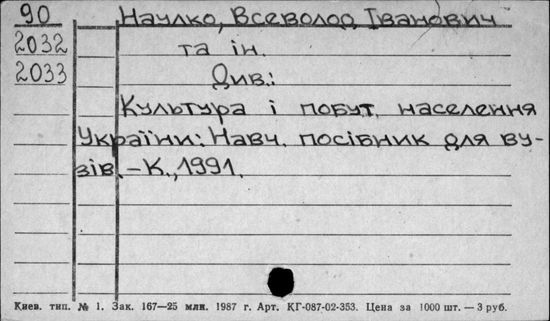 90 Наулко, Всеволод Іванович
2032 та ін.
2033 Див.:
Культура і побут населення
України: Навч. посібник для ву-
зів. – К., 1991.
Киев. тип. № 1. Зак. 167—25 млн. 1987 г. Арт. КГ-087-02-353. Цена за 1000 шт. — 3 руб.